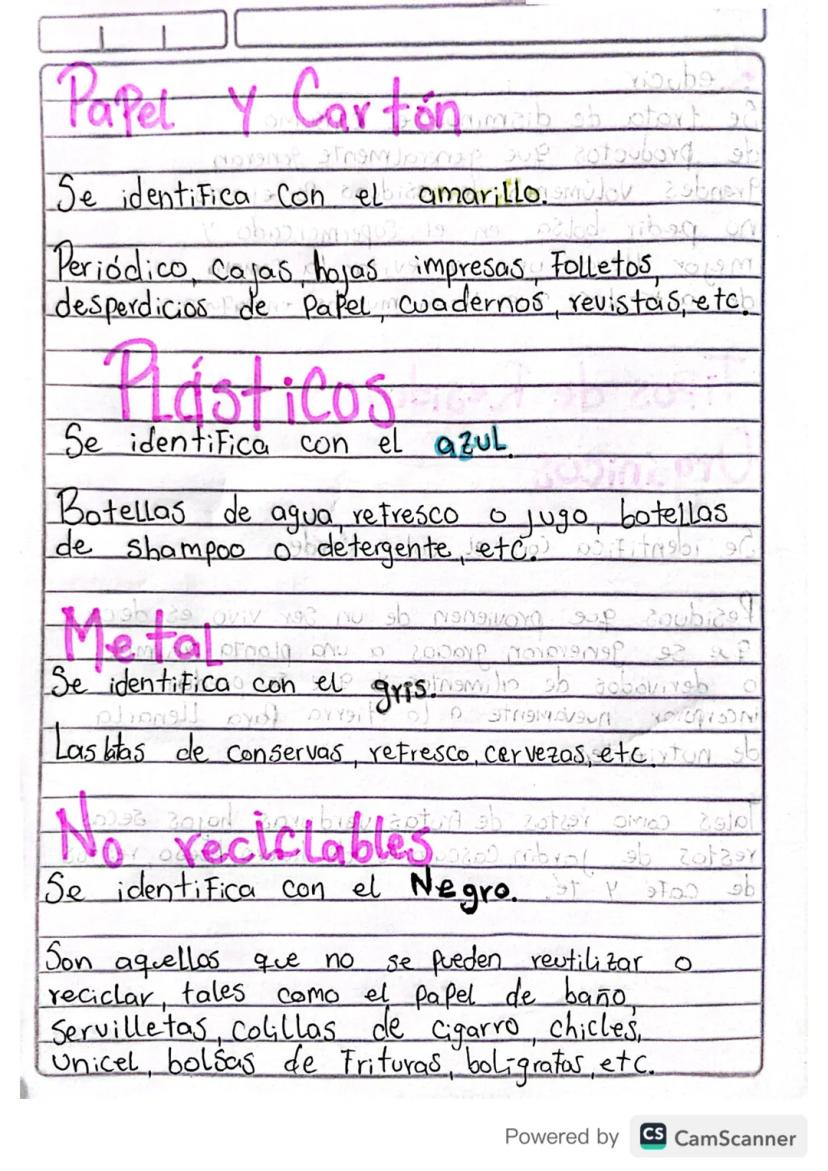 Papel y Cartón
Se identifica con el amarillo.
Periódico, cajas, hojas impresas, Folletos,
desperdicios de Papel, cuadernos, revistas, etc.
Plásticos
Se identifica con el azul.
Botellas de agua, refresco o jugo, botellas
de shampoo o detergente, etc.
Metal
Se identifica con el gris.
Las latas de conservas, refresco, cervezas, etc.
No reciclables
Se identifica con el Negro.
Son aquellos que no se pueden reutilizar o
reciclar, tales como el papel de baño,
servilletas, colillas de cigarro, chicles,
unicel, bolsas de frituras, boligrafas, etc.
Powered by CS CamScanner